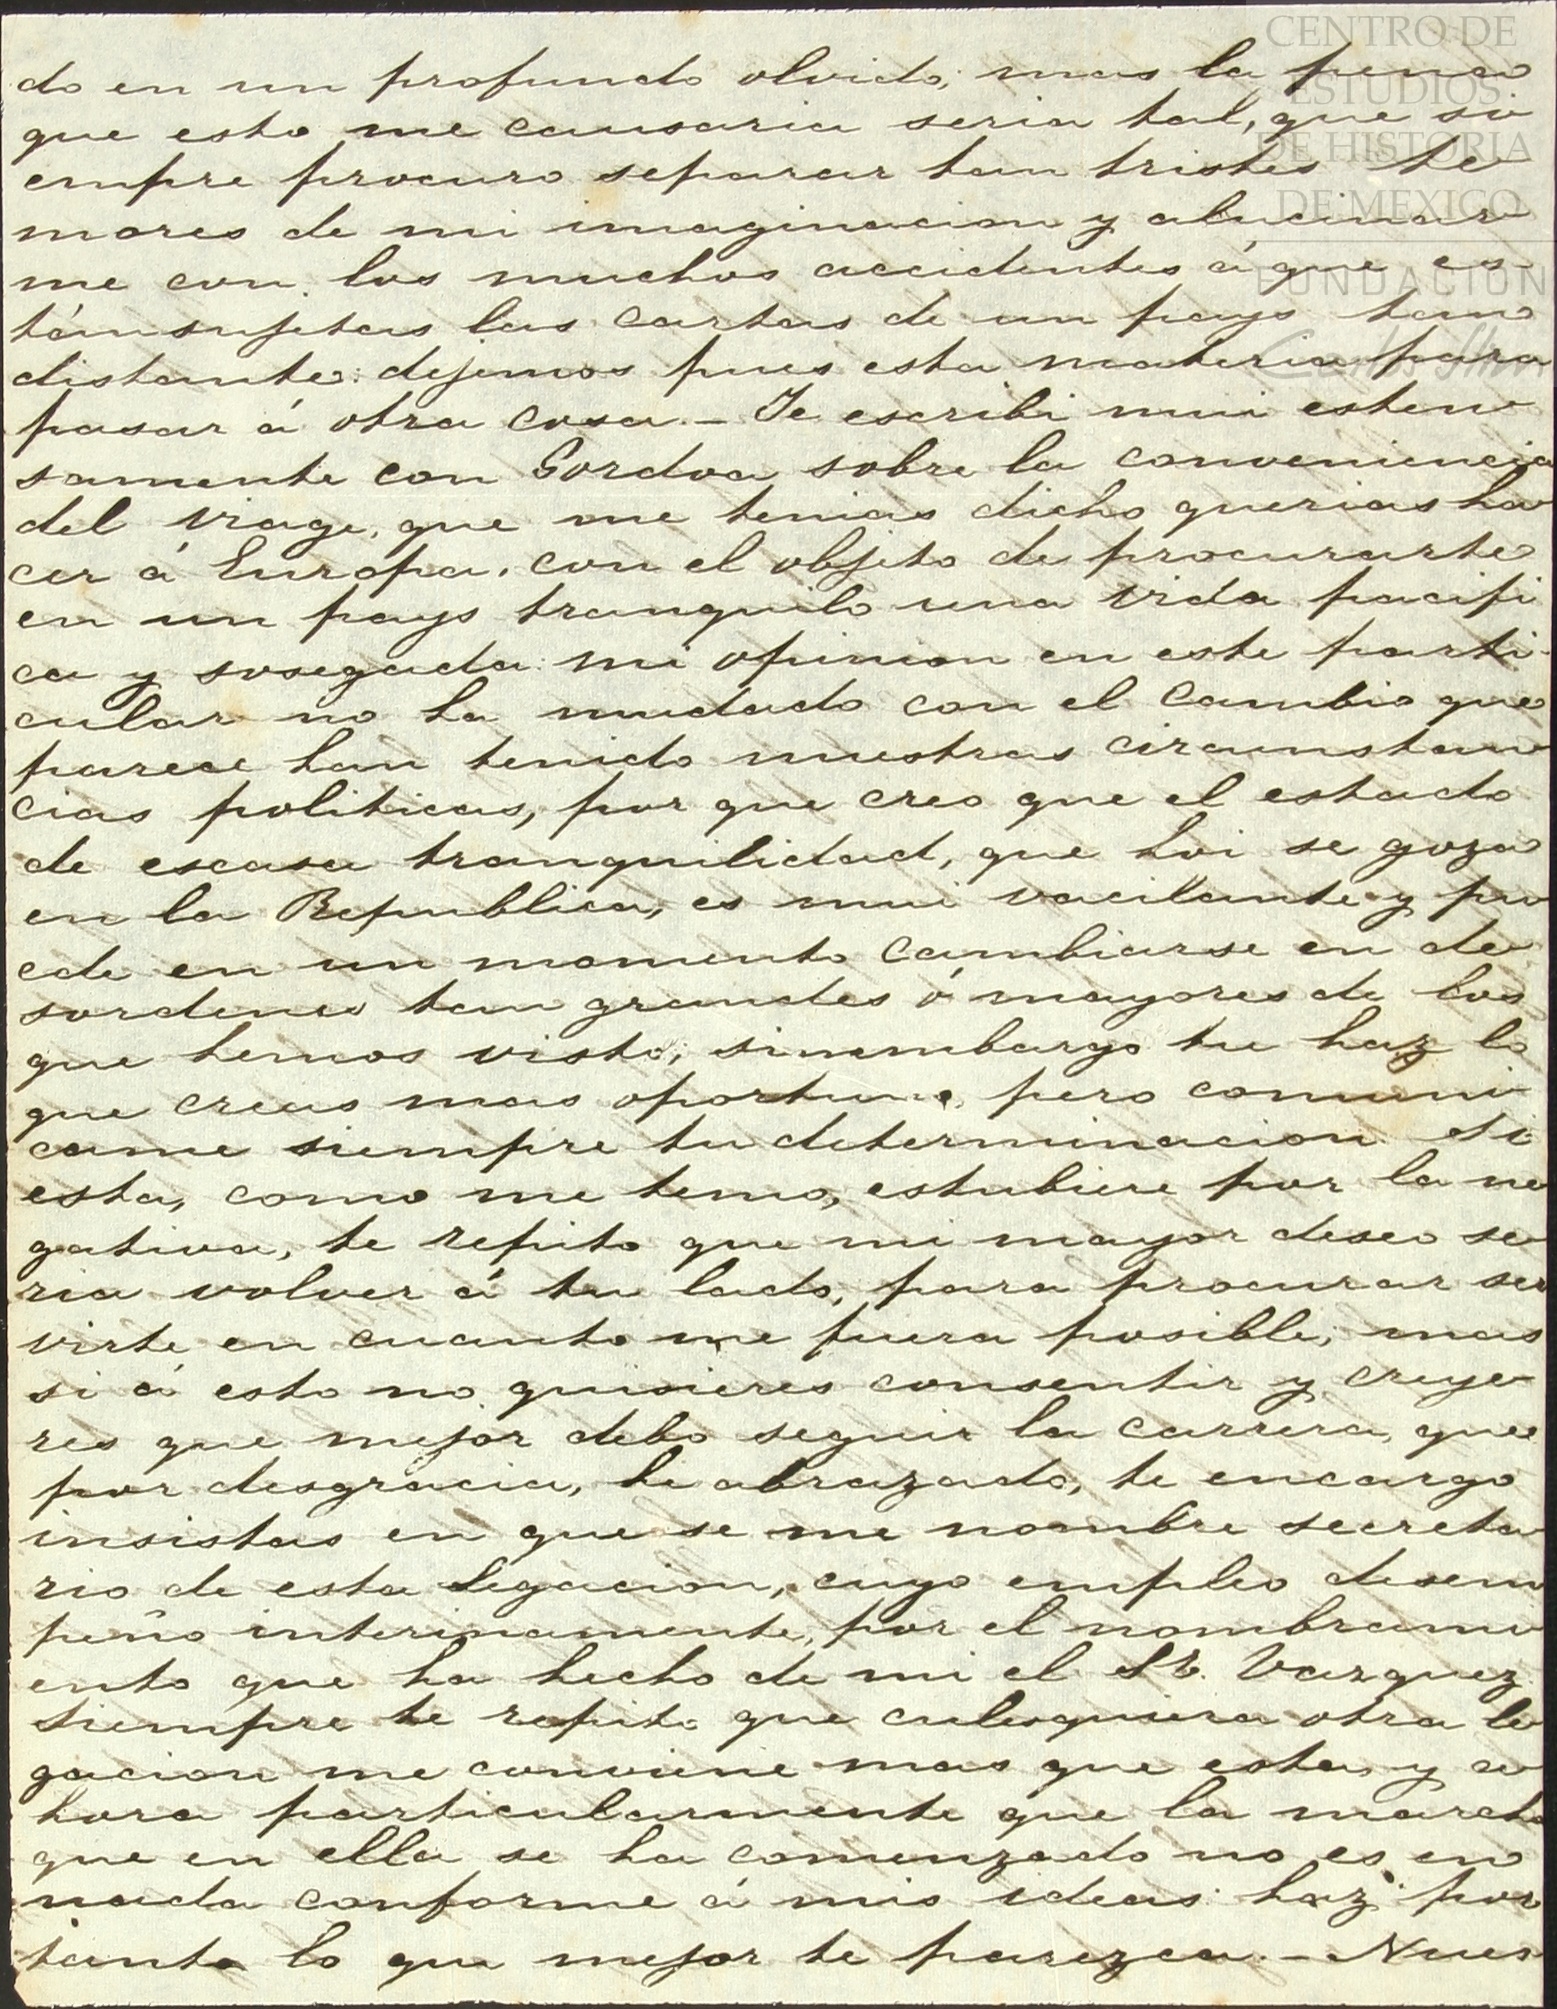 CENTRO DE
ESTUDIOS
DE HISTORIA
DE MEXICO
FUNDACION
do en un profundo olvido; mas la pena
que esto me causaria seria tal, que si
empre procuro separar tan tristes te
mores de mi imaginacion y alucinar
me con los muchos accidentes á que es
tán sujetas las cartas de un pays tan
distante: dejemos pues esta materia para
pasar á otra cosa. – Te escribi mui esten
samente con Gordoa sobre la conveniencia
del viage, que me tenias dicho querias ha
cer á Europa, con el objeto de procurarte
en un pays tranquilo una vida pacifi
ca y sosegada: mi opinion en este parti-
cular no ha mudado con el cambio que
parece han tenido nuestras circunstan
cias politicas, por que creo que el estado
de escasa tranquilidad, que hoi se goza
en la Republica, es mui vacilante y pu
ede en un momento cambiarse en de
sordenes tan grandes ó mayores de los
que hemos visto; sinembargo tu haz lo
que creas mas oportuno, pero comuni
came siempre tu determinacion. Si
esta, como me temo, estubiere por la ne
gativa, te repito que mi mayor deseo se
ria volver á tu lado, para procurar ser
virte en cuanto me fuera posible; mas
si á esto no quisieres consentir y creye
res que mejor debo seguir la carrera, que
por desgracia, he abrazado, te encargo
insistas en que se me nombre secreta
rio de esta Legacion, cuyo empleo desem
peño interinamente, por el nombrami
ento que ha hecho de mi el Sr. Vazquez.
Siempre te repito que culesquiera otra le
gacion me conviene mas que esta, y a
hora particularmente que la marcha
que en ella se ha comenzado no es en
nada conforme á mis ideas: haz por
tanto lo que mejor te parezca. – Nues